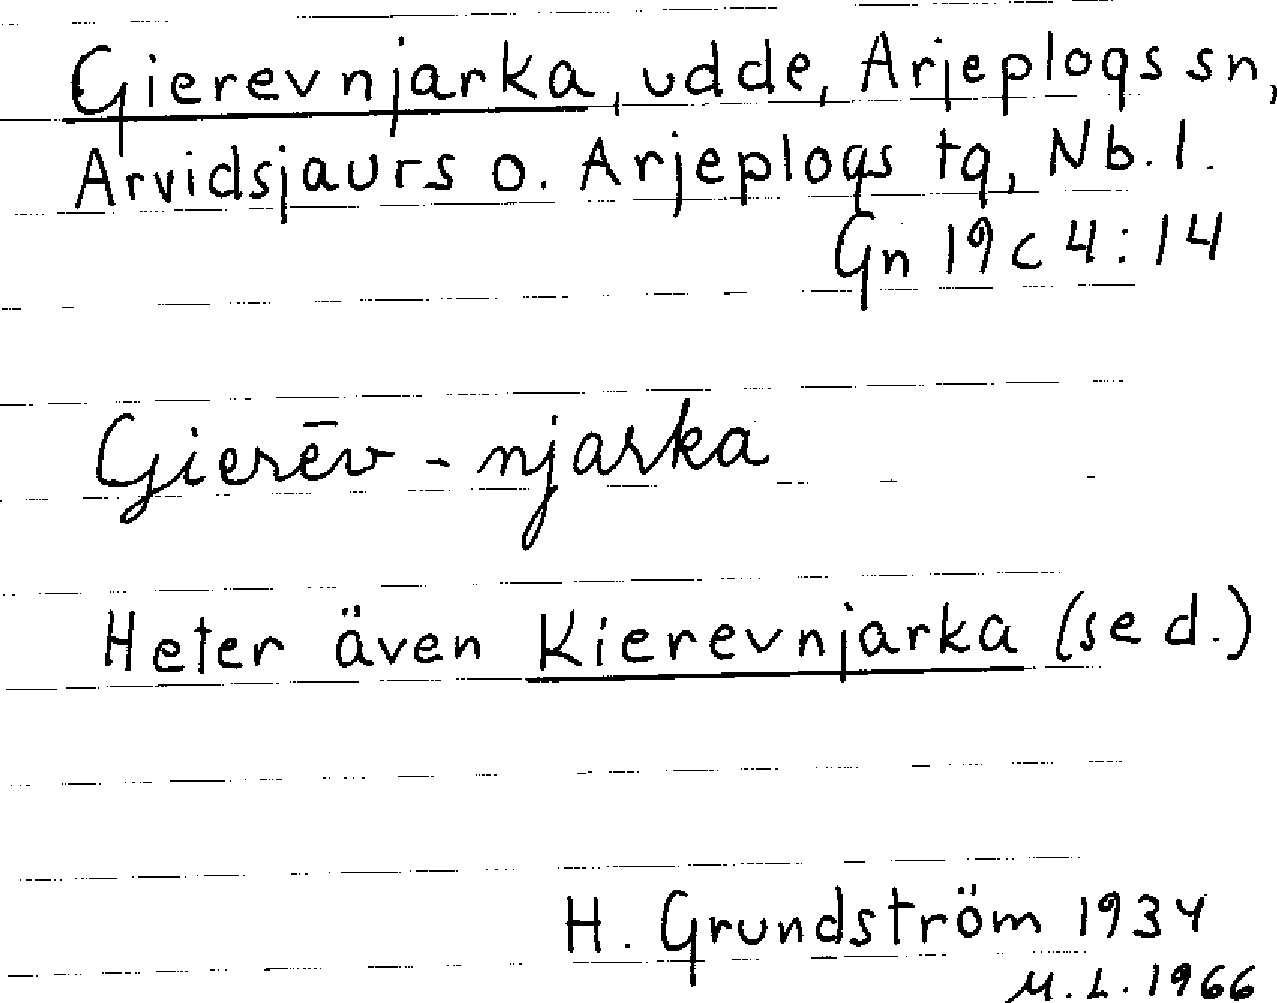 Gierevnjarka, udde, Arjeplogs sn,
Arvidsjaurs o. Arjeplogs tg, Nb.l.
Gn 19 c 4:14
Gierēv - njarka
Heter även Kierevnjarka (se d.)
H. Grundström 1934
M.L. 1966